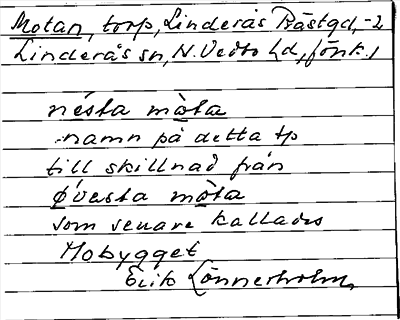 Motan, torp, Linderås Prästgd,-2
Linderås sn, N.Vedbo hd, Jönk.l
nésta mòta
namn på detta tp
till skillnad från
ǿvesta mòta
som senare kallades
Mobygget
Erik Lönnerholm